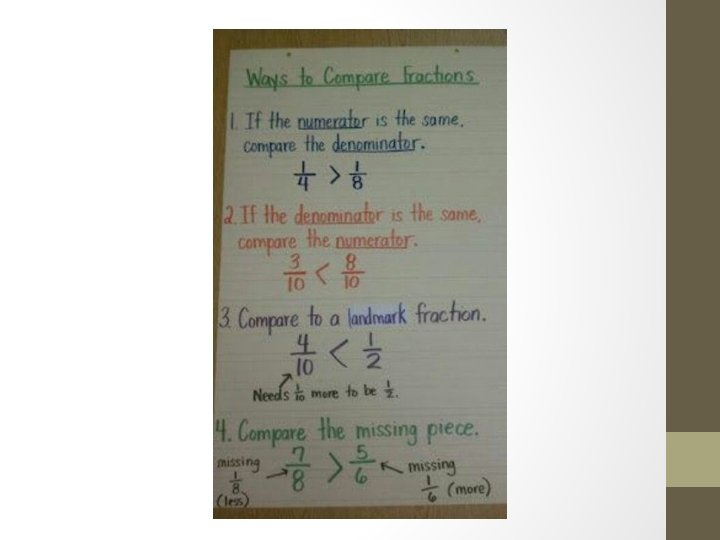 Ways to Compare Fractions
1. If the numerator is the same,
compare the denominator.
1/4 > 1/8
2. If the denominator is the same,
compare the numerator.
3/10 < 8/10
3. Compare to a landmark fraction.
4/10 < 1/2
Needs 1/10 more to be 1/2.
4. Compare the missing piece.
missing 1/8 (less)
7/8 > 5/6
missing 1/6 (more)